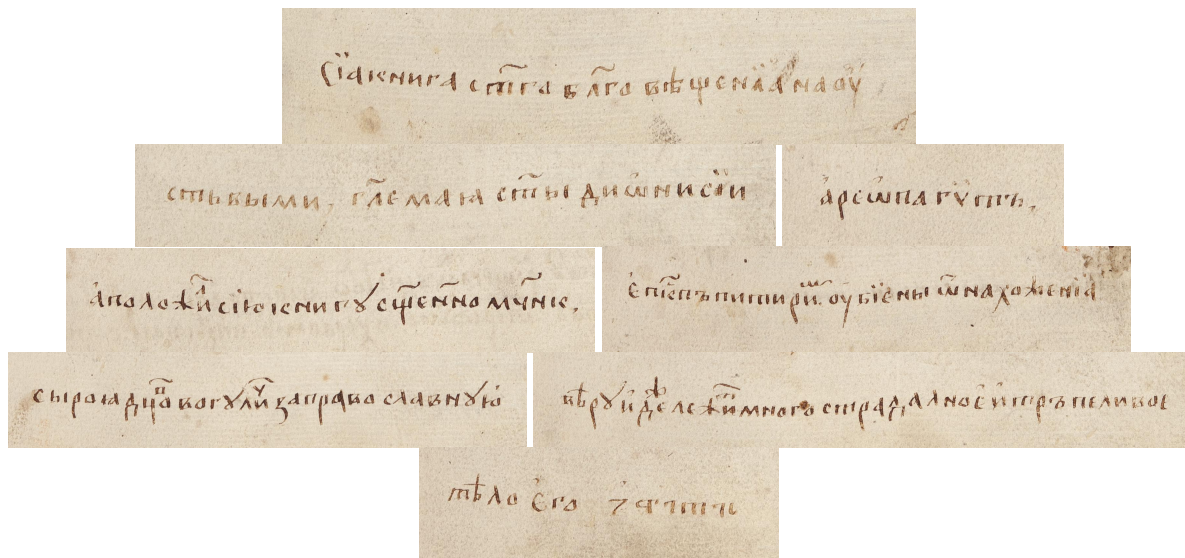 Сїакнига ст҃го бл҃говѣщенїана оу
стьвыми, гл҃емаꙗ ст҃ы дїѡнисїи арєѡпагѵтъ,
аположиⷧ҇ сїю книгꙋ сщ҃енномч҃нкъ, еп҃скпъ питириⷨ оубїены ѿ нахоженїа
сыроꙗдцоⷡ вогꙋлиⷱ заправославнꙋю вѣрꙋ и деⷤ лежиⷮ многострадалное и тръпеливое
тѣло его